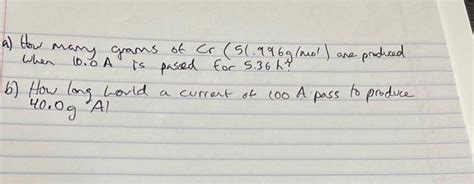 a) How many grams of Cr (51.996g/mol) are produced
when 10.0 A is passed for 5.36 h?
b) How long would a current of 100 A pass to produce
40.0g Al